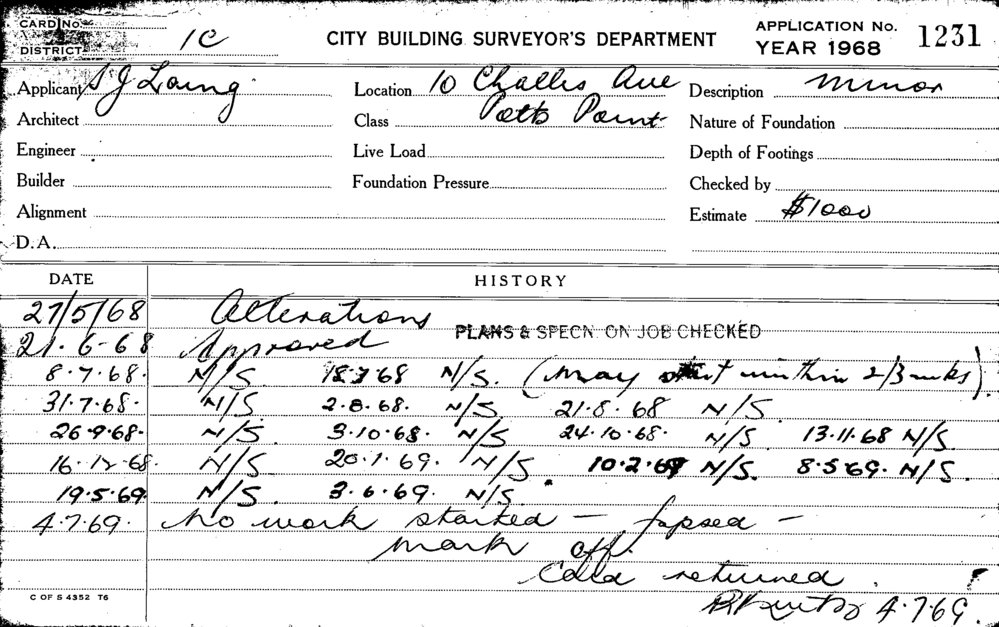 CARD No.
DISTRICT 1C
CITY BUILDING SURVEYOR'S DEPARTMENT
APPLICATION No. 1231
YEAR 1968
Applicant S J Laing
Location 10 Challis Ave
Description Minor
Architect
Class Potts Point
Nature of Foundation
Engineer
Live Load
Depth of Footings
Builder
Foundation Pressure
Checked by
Alignment
Estimate $1000
D.A.
DATE HISTORY
27/5/68 Alterations
PLANS & SPECN. ON JOB CHECKED
21.6.68 Approved
8.7.68. N/S. 18.7.68 N/S. (May start within 2/3 wks)
31.7.68. N/S 2.8.68. N/S 21.8.68 N/S
26.9.68. N/S. 3.10.68. N/S 24.10.68. N/S 13.11.68 N/S.
16.12.68. N/S 20.1.69. N/S 10.2.69 N/S. 8.5.69. N/S.
19.5.69 N/S. 3.6.69. N/S.
4.7.69. No work started — lapsed —
mark off.
Card returned.
4.7.69.
C OF S 4352 T6